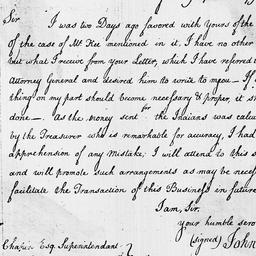 Sir
I was two Days ago favored with yours of the
of the case of Mr Kee mentioned in it, I have no other
but what I receive from your Letter, which I have referred t
Attorney General and desired him to write to you — If
thing on my part should become necessary & proper, it s
done — As the money sent for the Indians was calcu
by the Treasurer who is remarkable for accuracy, I had
apprehension of any Mistake; I will attend to this s
and will promote such arrangements as may be neces
facilitate the Transaction of this Business in future
I am, Sir,
your humble serv
(signed) John
Chapin Esq. Superintendant